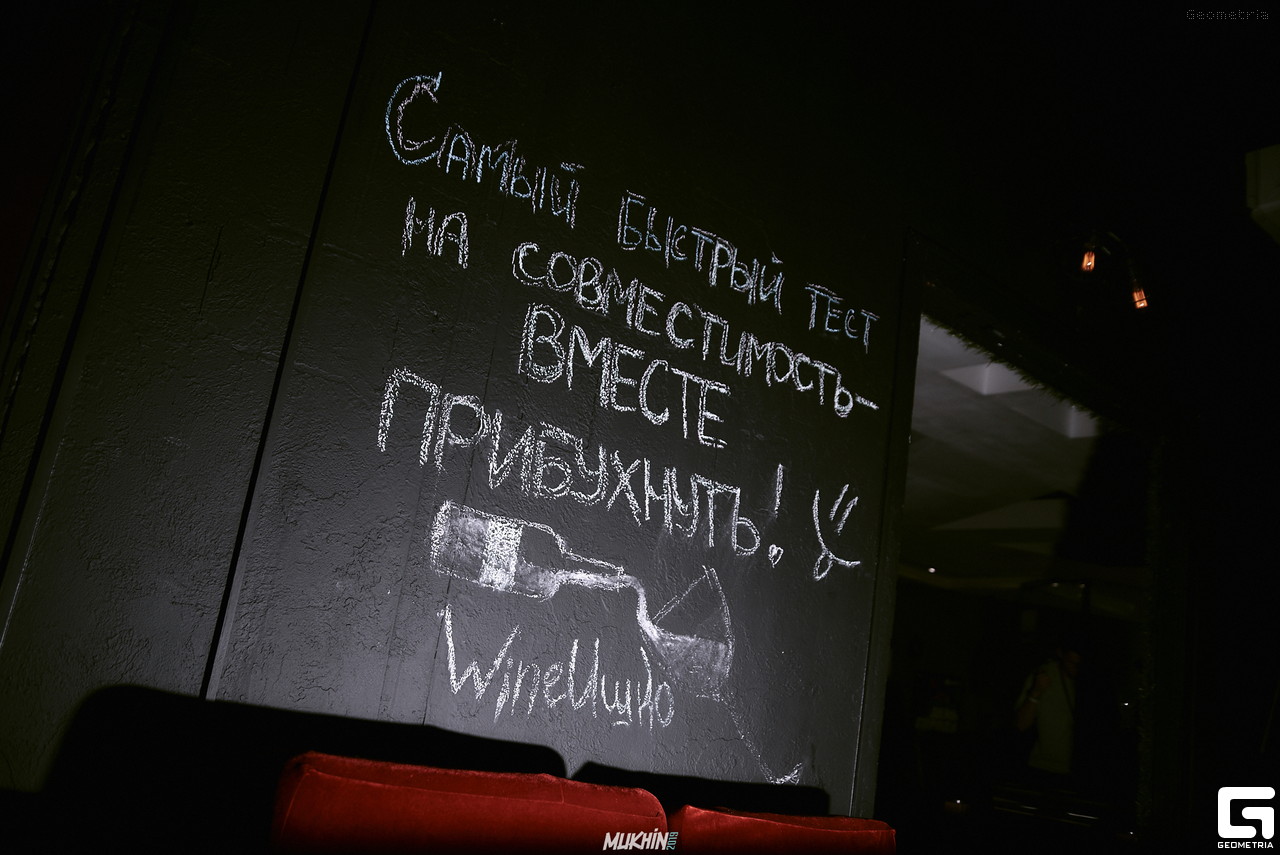 Geometria
Самый быстрый тест
на совместимость-
вместе
прибухнуть!
WineИшко
MUKHIN 2019
GEOMETRIA